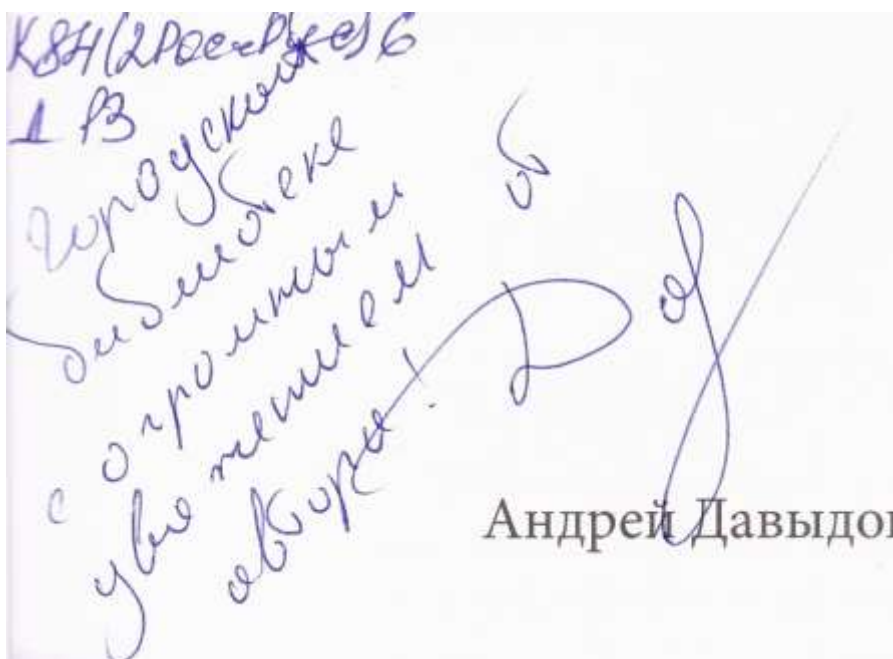 К84(2Рос=Рус)6
1 РЗ
Городской
библиотеке
с огромным
уважением от
автора!
Андрей Давыдов